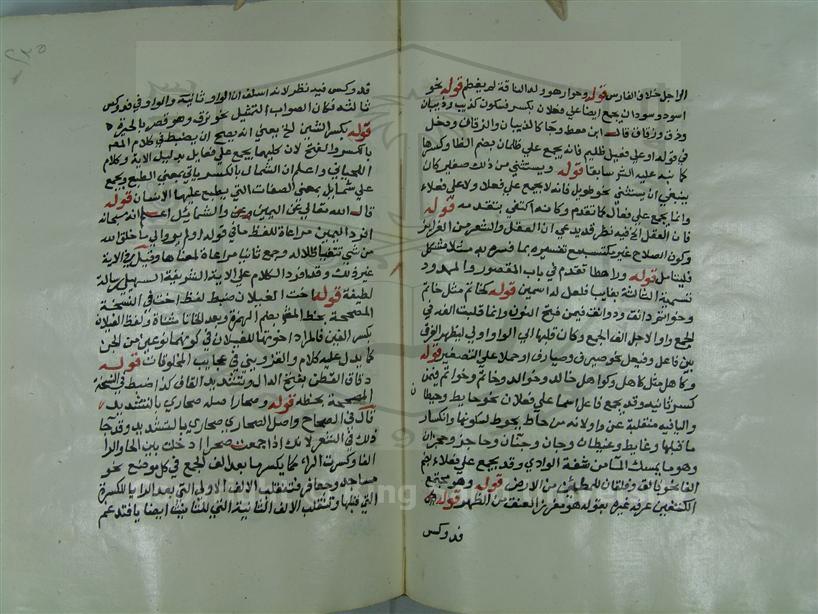 الراجل خلاف الفارس قوله وحوار هو ولد الناقة لم يفطم قوله نحو
اسود وسودان يجمع ايضا علي فعلان بكسر فسكون كذيب وذيبان
وزق وزقاق قال ابن معط وجا كالذيبان والزقاق ودخل
في قوله او علي فعيل ظليم فانه يجمع علي ظلمان بضم الظا وكسرها
كما نبه عليه سابقا قوله ويستثني من ذلك صغير كان
ينبغي ان يستثني نحو طويل فانه لا يجمع علي فعلا ولا علي فعلاء
وانما يجمع علي فعال كما تقدم وكانه اكتفي بتقدمه قوله
فان العقل الخ فيه نظر قد يدعي ان العقل والشعر من الغرايز
وكون الصلاح غير مكتسب مع تفسيره بما فسره به مثلا مشكل
فليتامل قوله وراهطا تقدم في باب المقصور والممدود
تسمية الثالثة بغايب فلعل له اسمين قوله كخاتم مثل خاتم
وخواتم دانق ودوانق فيمن فتح النون وانما قلبت الفه في
الجمع واوا لاجل الف الجمع وكان قلبها الي الواو اولي ليظهر الفرق
بين فاعل وفيعل نحو صيرف وصيارف او حملا علي التصغير قوله
وكاهل مثل كاهل وكواهل خالد وخوالد وخاتم وخواتم فيمن
كسر ثانيه وقد يجمع فاعل اسما علي فعلان نحو حايط وحيطان
واليا فيه منقلبة عن واو لانه من حاط يحوط لسكونها وانكسار
ما قبلها وغايط وغيطان وجان وجنان وحاجز وحجزان
وهو ما يمسك الما من شفة الوادي وقد يجمع علي فعلاء بضم
الفا نحو فالق وفلقان للمطمئن من الارض قوله وهو مجتمع
الكتفين عرفه غيره بقوله هو مغرز العنق من الظهر قوله
فدوكس
فدوكس فيه نظر لانه اسلف ان الواو ثانية والواو في فدوكس
ثالثة فكان الصواب التمثيل نحو وهو قصر بالحيرة
قوله بكسر الشين الخ يعني انه يصح ان يضبط في كلام المص
بالكسر والفتح لان كليهما يجمع علي فعايل بدليل الاية وكلام
اللحياني واعلم ان الشمال بالكسر ياتي بمعني الطبع ويجمع
علي شمايل بمعني الصفات التي يطبع عليها الانسان قوله
قال الله تعالي عن اليمين والشمايل اعلم انه سبحانه
افرد اليمين مراعاة للفظ ما في قوله اولم يروا الي ما خلق الله
من شي تتفيا ظلاله وجمع ثانيا مراعاة لمعناها وقيل في الاية
غير ذلك وقد افرد الكلام علي الاية الشريفة السهيلي رسالة
لطيفة قوله اخت الغيلان ضبط لفظ اخت في النسخة
المصححة بخط المص بضم الهمزة وبعد الخا تا مثناة ولفظ الغيلان
بكسر الغين فالمراد اخوتها للغيلان في كونهما نوعين من الجن
كما يدل عليه كلام والقزويني في عجايب المخلوقات قوله
دقاق القطن بفتح الدال وتشديد القاف كذا ضبط في النسخة
المصححة بخطه قوله وصحارا اصله صحاري بالتشديد
قال في الصحاح واصل الصحاري صحاري بالتشديد وقد جا
ذلك في الشعر لانك اذا جمعت صحرا ادخلت بين الحا والرا
الفا وكسرت الراء كما يكسر ما بعد الف الجمع في كل موضع نحو
مساجد وجعافر فتنقلب الالف الاولي التي بعد الرا يا للكسرة
التي قبلها وتنقلب الالف الثانية التي للتانيث ايضا يا فتدغم